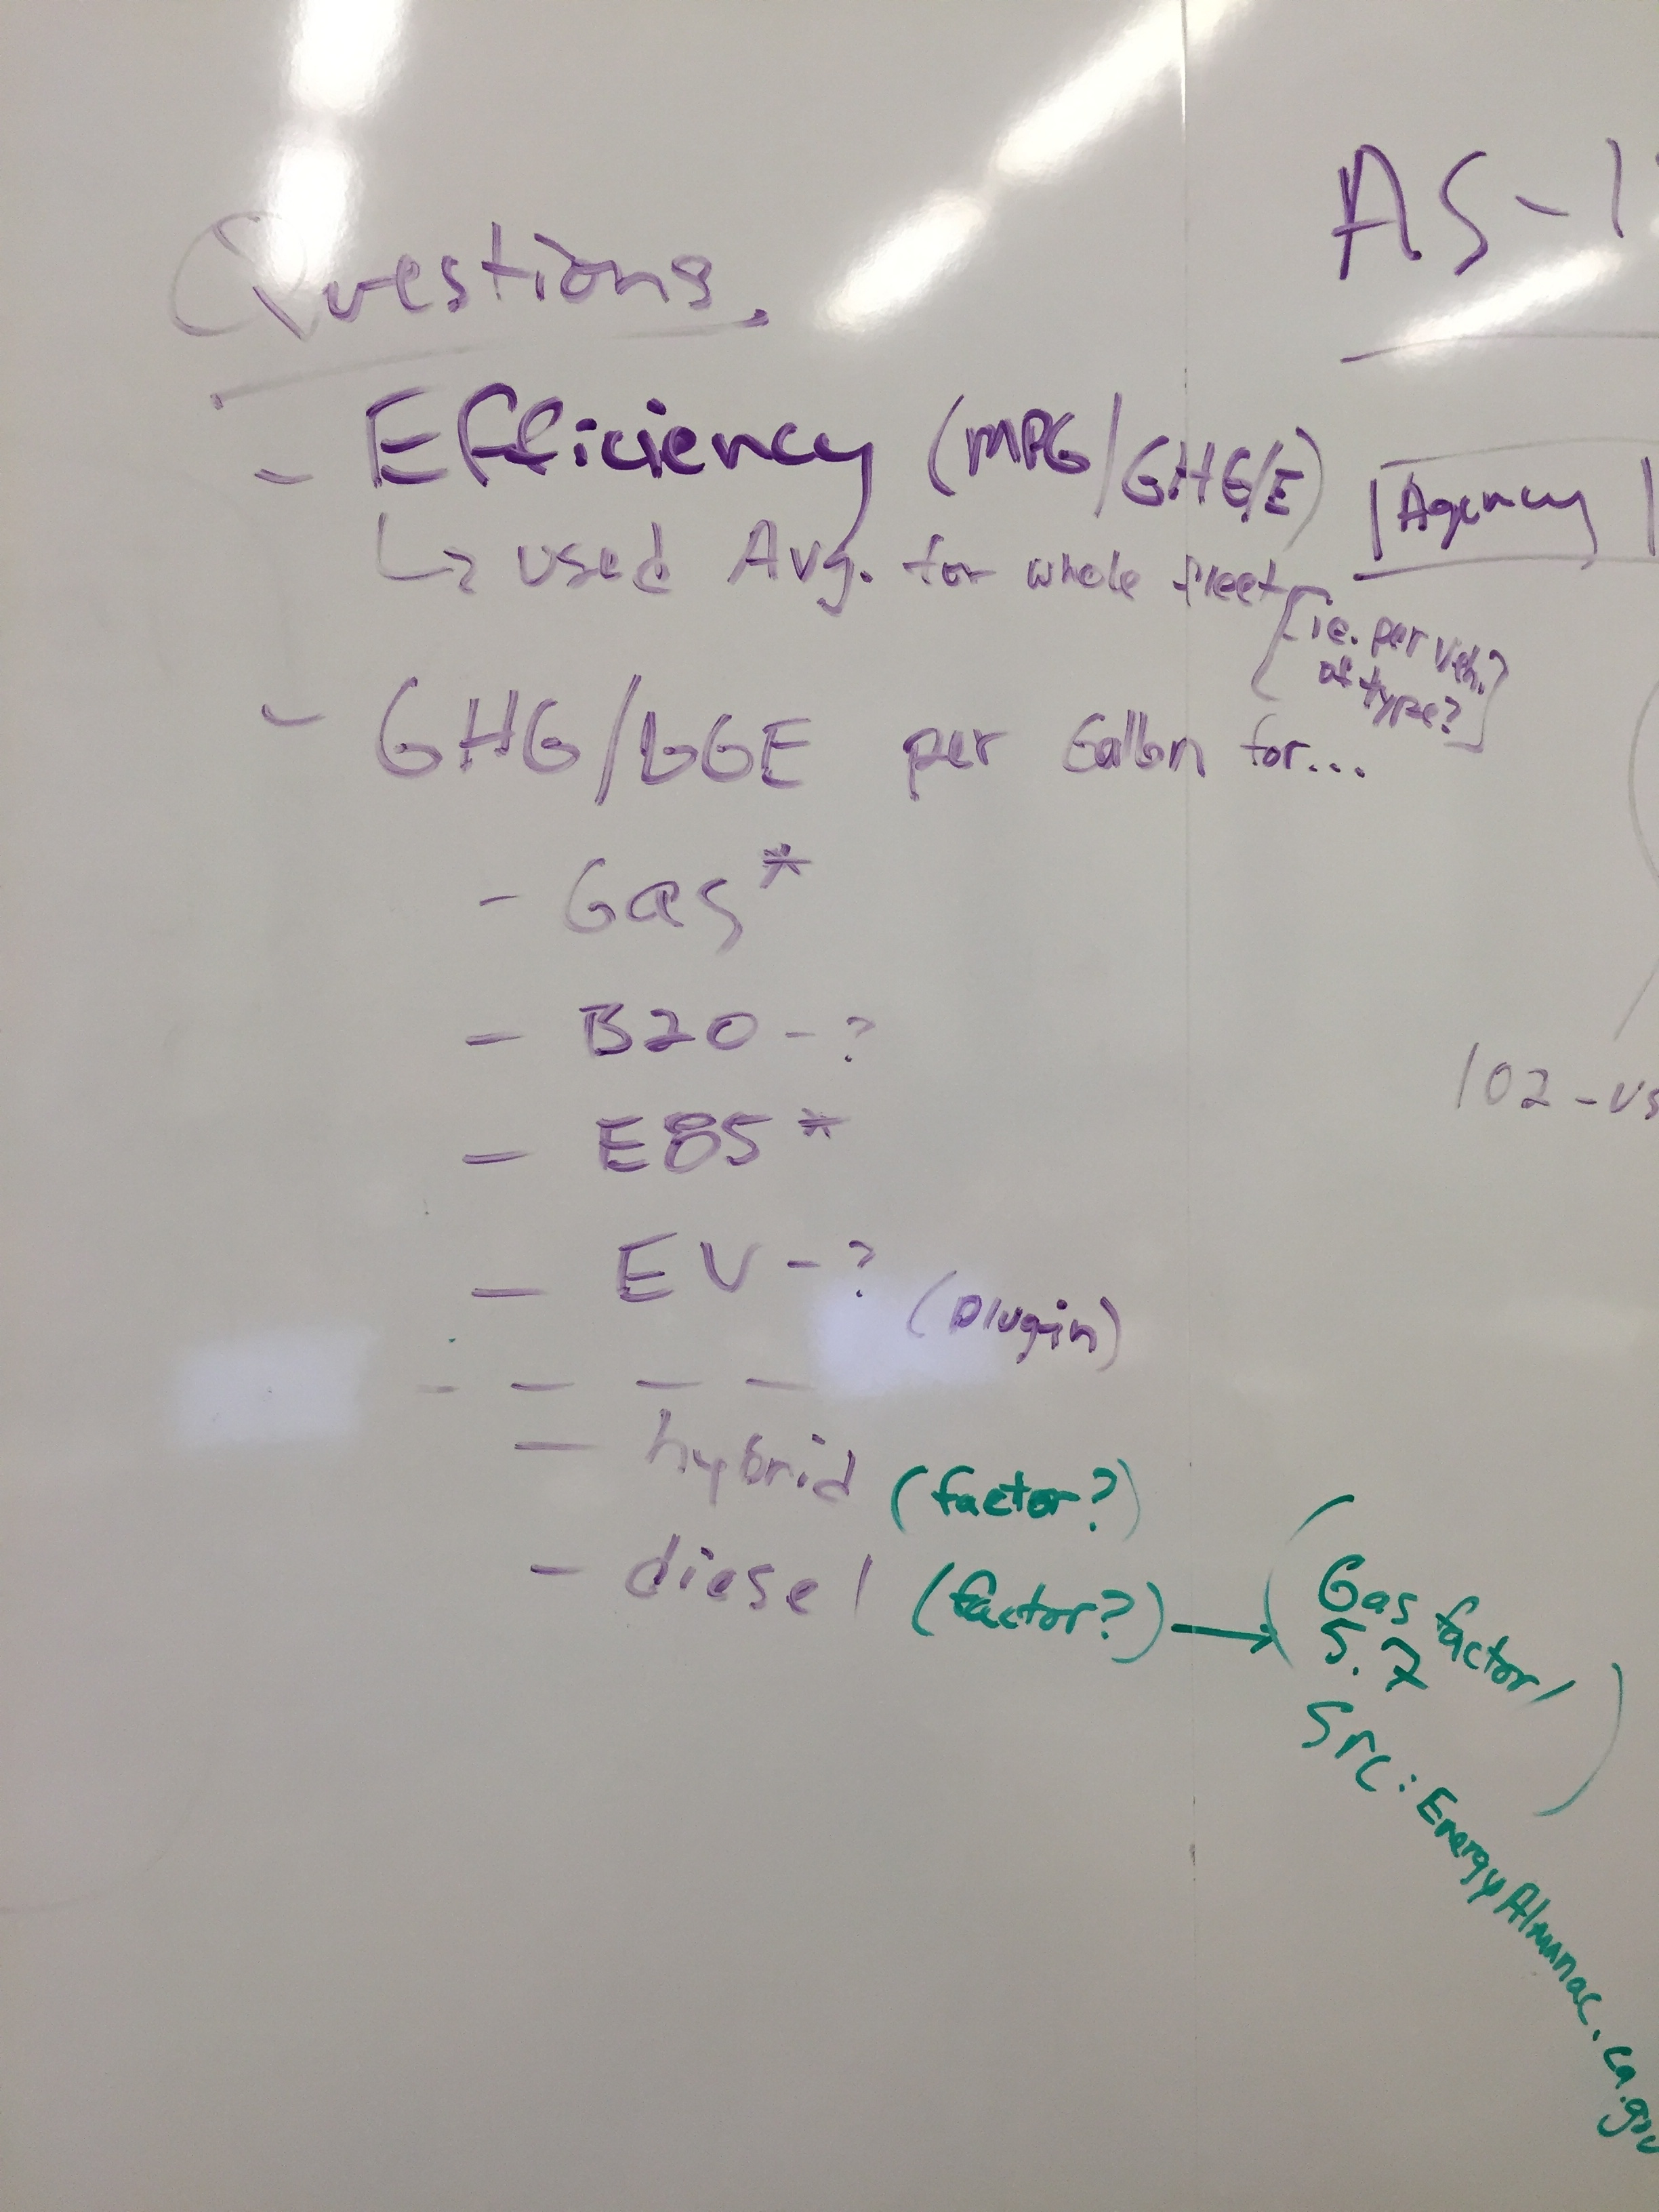 Questions.
- Efficiency (MPG/GHG/E)
↳ used Avg. for whole fleet
[ie. per veh.?
of type?]
- GHG/GGE per Gallon for...
- Gas*
- B20 - ?
- E85 *
- EV - ? (plugin)
- - - -
- hybrid (factor?)
- diesel (factor?) → (Gas factor/
5.7
src: EnergyAlmanac.ca.gov)
AS-1
|Agency|
102-vs